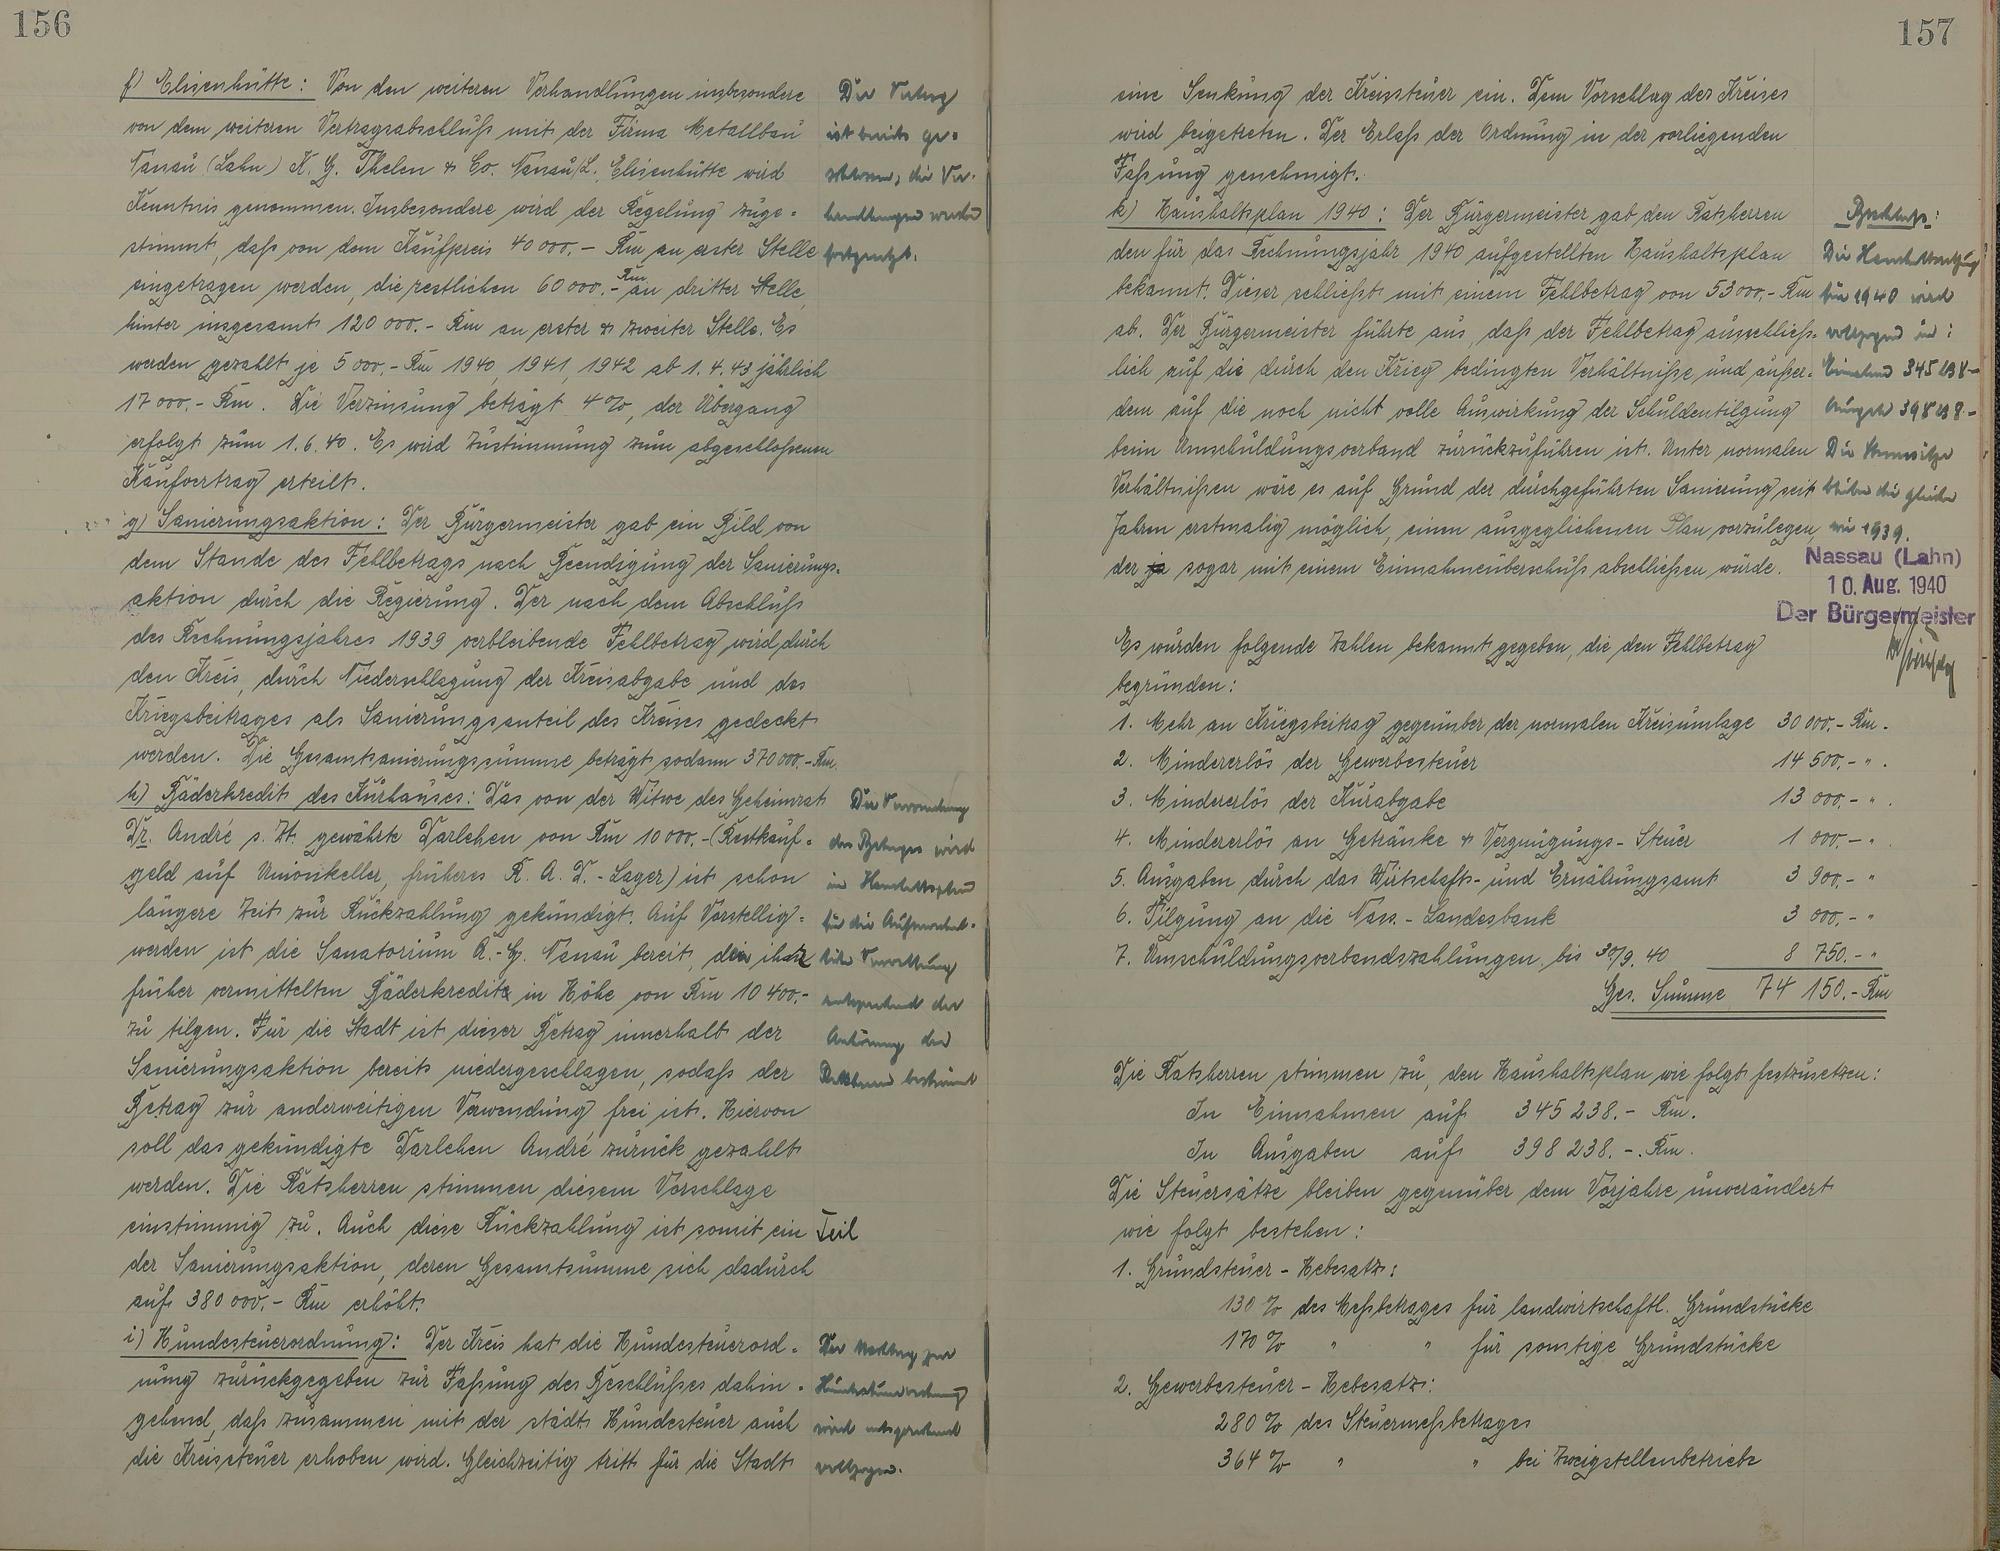 156
f) Elisenhütte: Von den weiteren Verhandlungen insbesondere
von dem weiteren Vertragsabschluß mit der Firma Metallbau
Nassau (Lahn) K. G. Thelen & Co. Nassau/L. Elisenhütte wird
Kenntnis genommen. Insbesondere wird der Regelung zuge-
stimmt, daß von dem Kaufpreis 40 000,- Rm an erster Stelle
eingetragen werden, die restlichen 60 000.- Rm an dritter Stelle,
hinter insgesamt 120 000.- Rm an erster & zweiter Stelle. Es
werden gezahlt je 5 000,- Rm 1940, 1941, 1942 ab 1. 4. 43 jährlich
17 000,- Rm. Die Verzinsung beträgt 4%, der Übergang
erfolgt zum 1. 6. 40. Es wird Zustimmung zum abgeschlossenen
Kaufvertrag erteilt.
Der Vertrag
ist bereits ge-
schlossen, die Ver-
handlungen werden
fortgesetzt.
g) Sanierungsaktion: Der Bürgermeister gab ein Bild von
dem Stande des Fehlbetrags nach Beendigung der Sanierungs-
aktion durch die Regierung. Der nach dem Abschluß
des Rechnungsjahres 1939 verbleibende Fehlbetrag wird durch
den Kreis, durch Niederschlagung der Kreisabgabe und des
Kriegsbeitrages als Sanierungsanteil des Kreises gedeckt
werden. Die Gesamtsanierungssumme beträgt sodann 370 000,- Rm.
h) Bäderkredit des Kurhauses: Das von der Witwe des Geheimrat
Dr. André s. Zt. gewährte Darlehen von Rm 10 000.- (Restkauf-
geld auf Unionkeller, früheres R. A. D.- Lager) ist schon
längere Zeit zur Rückzahlung gekündigt. Auf Vorstellig-
werden ist die Sanatorium A.-G. Nassau bereit, den ihr
früher vermittelten Bäderkredit in Höhe von Rm 10 400,-
zu tilgen. Für die Stadt ist dieser Betrag innerhalb der
Sanierungsaktion bereits niedergeschlagen, sodaß der
Betrag zur anderweitigen Verwendung frei ist. Hiervon
soll das gekündigte Darlehen André zurück gezahlt
werden. Die Ratsherren stimmen diesem Vorschlage
einstimmig zu. Auch diese Rückzahlung ist somit ein Teil
der Sanierungsaktion, deren Gesamtsumme sich dadurch
auf 380 000,- Rm erhöht.
Die Verwendung
des Betrages wird
im Haushaltsplan
entsprechend der
Anhörung der
Ratsherren bestimmt
i) Hundesteuerordnung: Der Kreis hat die Hundesteuerord-
nung zurückgegeben zur Faßung des Beschlußes dahin-
gehend, daß zusammen mit der städt. Hundesteuer auch
die Kreissteuer erhoben wird. Gleichzeitig tritt für die Stadt
Der Nachtrag zur
Hundesteuerordnung
wird entsprechend
vollzogen.
157
eine Senkung der Kreissteuer ein. Dem Vorschlag des Kreises
wird beigetreten. Der Erlaß der Ordnung in der vorliegenden
Faßung genehmigt.
k) Haushaltsplan 1940: Der Bürgermeister gab den Ratsherren
den für das Rechnungsjahr 1940 aufgestellten Haushaltsplan
bekannt. Dieser schließt mit einem Fehlbetrag von 53 000,- Rm
ab. Der Bürgermeister führte aus, daß der Fehlbetrag ausschließ-
lich auf die durch den Krieg bedingten Verhältniße und außer-
dem auf die noch nicht volle Auswirkung der Schuldentilgung
beim Umschuldungsverband zurückzuführen ist. Unter normalen
Verhältnißen wäre es auf Grund der durchgeführten Sanierung seit
Jahren erstmalig möglich, einen ausgeglichenen Plan vorzulegen,
der ja sogar mit einem Einnahmeüberschuß abschließen würde.
Beschluß:
Die Haushaltssatzung
für 1940 wird
Einnahmen 345 238 -
Ausgabe 398 238 -
Die Steuersätze
bleiben die gleichen
wie 1939.
Nassau (Lahn)
10. Aug. 1940
Der Bürgermeister
Es wurden folgende Zahlen bekannt gegeben, die den Fehlbetrag
begründen:
1. Mehr an Kriegsbeitrag gegenüber der normalen Kreisumlage 30 000,- Rm.
2. Mindererlös der Gewerbesteuer 14 500,- " .
3. Mindererlös der Kurabgabe 13 000,- " .
4. Mindererlös an Getränke & Vergnügungs-Steuer 1 000,- " .
5. Ausgaben durch das Wirtschafts- und Ernährungsamt 3 900,- "
6. Tilgung an die Nass.- Landesbank 3 000,- "
7. Umschuldungsverbandszahlungen bis 30/9. 40 8 750.- "
Ges. Summe 74 150.- Rm
Die Ratsherren stimmen zu, den Haushaltsplan wie folgt festzusetzen:
In Einnahmen auf 345 238.- Rm.
In Ausgaben auf 398 238.-. Rm.
Die Steuersätze bleiben gegenüber dem Vorjahre unverändert
wie folgt bestehen:
1. Grundsteuer-Hebesatz:
130 % des Meßbetrages für landwirtschaftl. Grundstücke
170 % " " für sonstige Grundstücke
2. Gewerbesteuer-Hebesatz:
280 % des Steuermeßbetrages
364 % " " bei Zweigstellenbetrieb